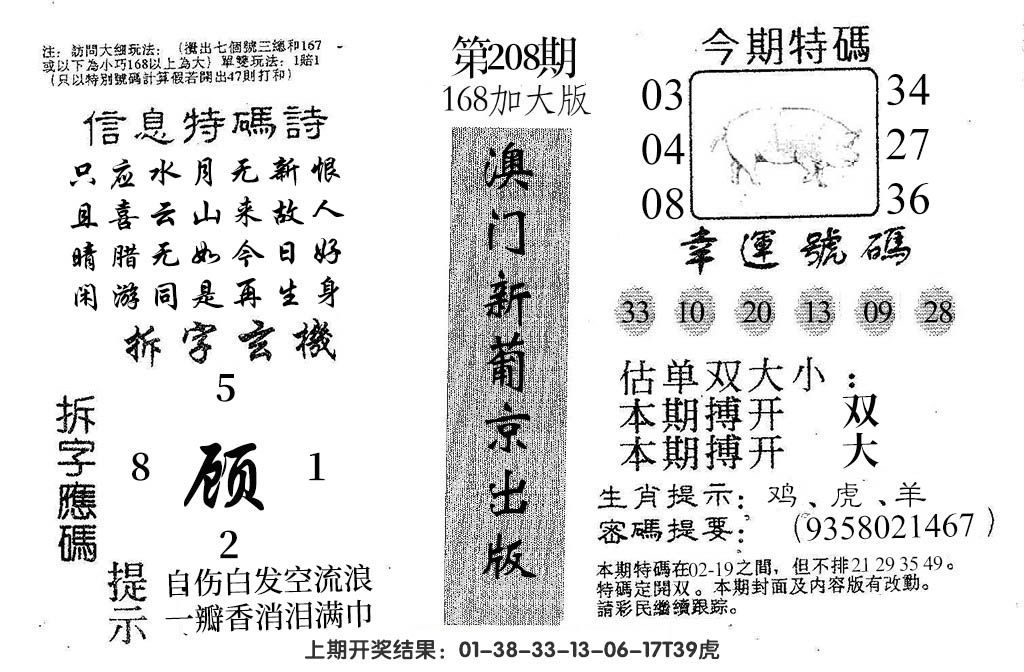 注：訪問大细玩法：(攪出七個號三總和167
或以下為小巧168以上為大) 單雙玩法：1賠1
(只以特別號碼計算假若開出47則打和)
信息特碼詩
只应水月无新恨
且喜云山来故人
晴腊无如今日好
闲游同是再生身
拆字玄機
5
8 顾 1
2
拆字應碼
提示
自伤白发空流浪
一瓣香消泪满巾
第208期
168加大版
澳门新葡京出版
今期特碼
03 34
04 27
08 36
幸運號碼
33 10 20 13 09 28
估单双大小：
本期搏开 双
本期搏开 大
生肖提示：鸡、虎、羊
密碼提要：(9358021467)
本期特碼在02-19之間，但不排21 29 35 49。
特碼定開双。本期封面及内容版有改動。
請彩民繼續跟踪。
上期开奖结果：01-38-33-13-06-17T39虎